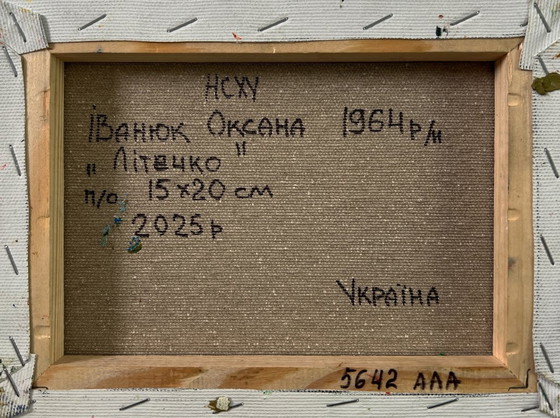 НСХУ
Іванюк Оксана 1964 р/н
„Літечко"
п/о 15х20 см
2025 р
Україна
5642 ААА